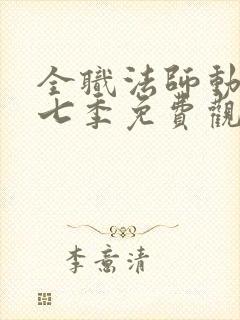 全職法師動
七季免費觀
李意清